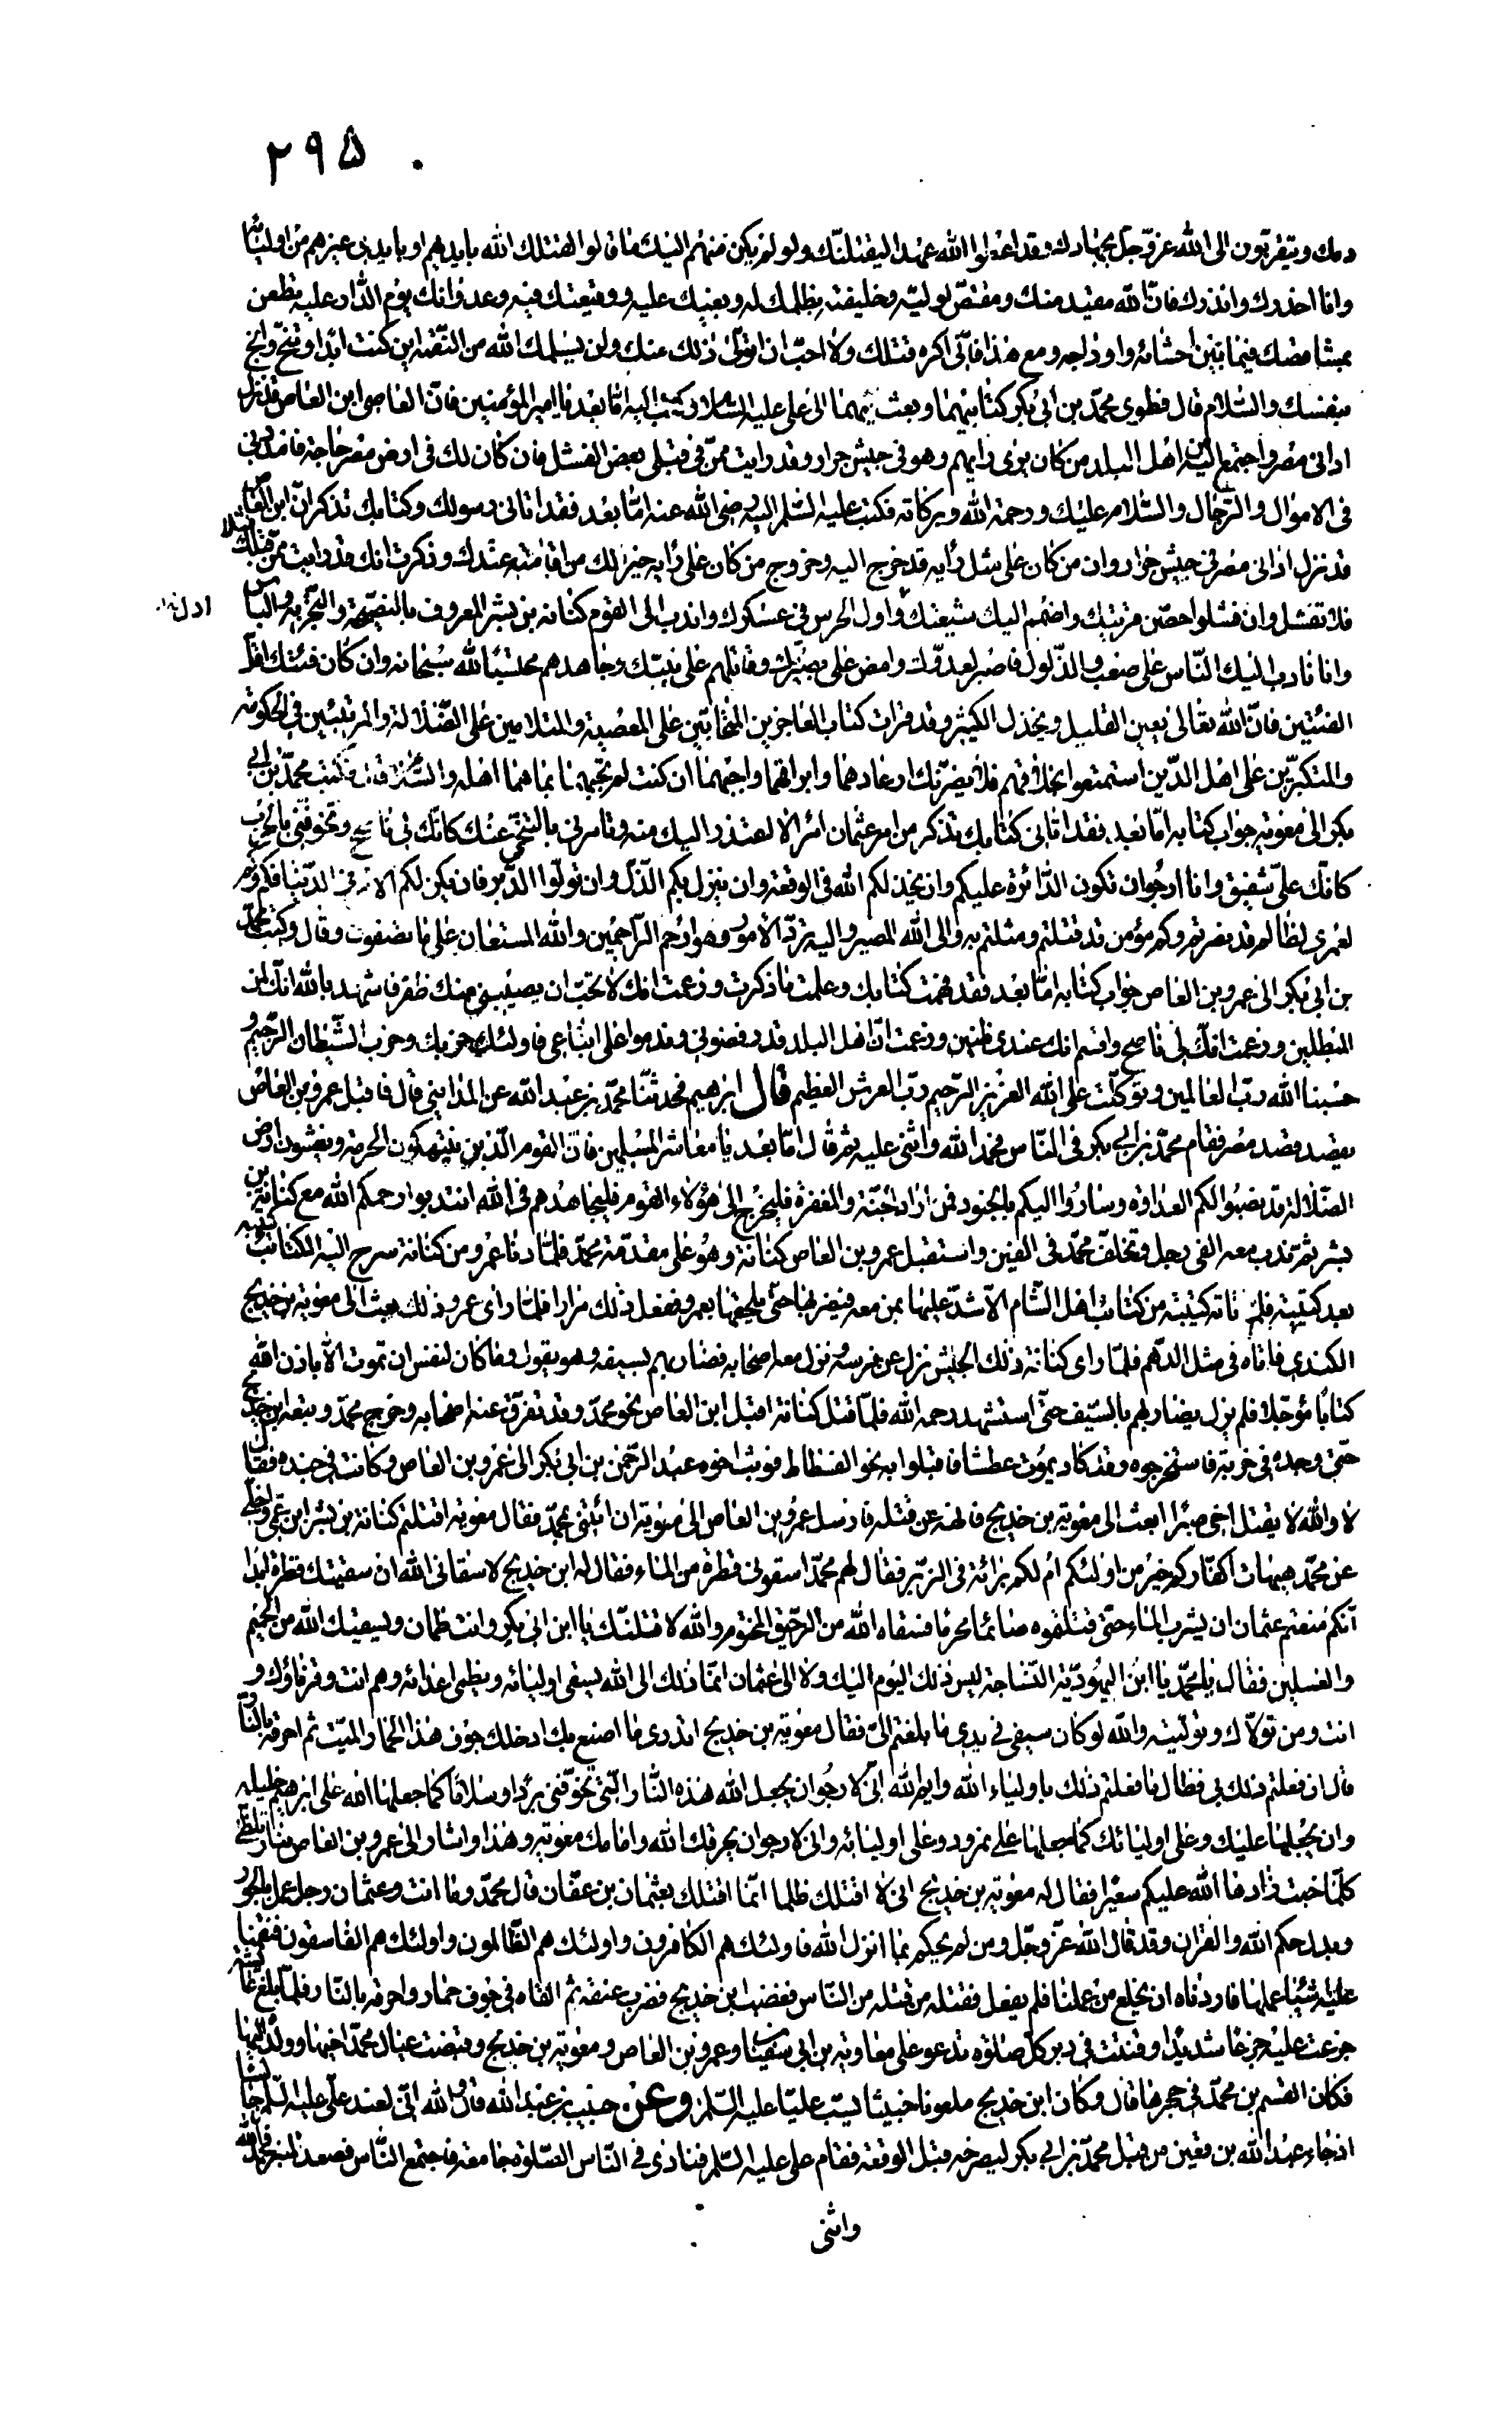 ۲۹۵
دمك ويتقربون الى الله عز وجل بجهادك وقد اعطوا الله عهدا ليقتلنك ولو لم يكن منهم اليك ما قالوا لقتلك الله بايديهم او بايدى غيرهم من اوليائه
وانا احذرك وانذرك فان الله مقيد منك ومقتص لوليه وخليفته بظلمك له وبغيك عليه ووقيعتك فيه وعدوانك يوم الدار عليه تطعن
بمشاقصك فيما بين احشائه واوداجه ومع هذا فانى اكره قتلك ولا احب ان اتولى ذلك منك ولن يسلمك الله من النقمة اين كنت ابدا فتنح وانج
بنفسك والسلام قال فطوى محمد بن ابى بكر كتابيهما وبعث بهما الى على عليه السلام وكتب اليه اما بعد يا امير المؤمنين فان العاصى ابن العاص قد نزل
ادانى مصر واجتمع اليه من اهل البلد من كان يرى رايهم وهو فى جيش جرار وقد رايت ممن قبلى بعض الفشل فان كان لك فى ارض مصر حاجة فامددنى
فى الاموال والرجال والسلام عليك ورحمة الله وبركاته فكتب عليه السلم اليه رضى الله عنه اما بعد فقد اتانى رسولك وكتابك تذكر ان ابن العاص
قد نزل ادانى مصر فى جيش جرار وان من كان على مثل رايه قد خرج اليه وخروج من كان على رايه خير لك من اقامته عندك وذكرت انك قد رايت ممن قبلك فشلا
فلا تفشل وان فشلوا حصن قريتك واضمم اليك شيعتك واول الحرس فى عسكرك واندب الى القوم كنانة بن بشر المعروف بالنصيحة والتجربة والباس
وانا نادب اليك الناس على الصعب والذلول فاصبر لعدوك وامض على بصيرتك وقاتلهم على نيتك وجاهدهم محتسبا لله سبحانه وان كان فئتك اقل
الفئتين فان الله تعالى يعين القليل ويخذل الكثير وقد قرات كتاب الفاجرين المتحابين على المعصية والمتلائمين على الضلالة والمرتشيين فى الحكومة
والمتكبرين على اهل الدين استمتعوا بخلاقهم فلا يضرنك ارعادهما وابراقهما واجبهما ان كنت لم تجبهما بما هما اهله والسلام قال فكتب محمد بن ابى
بكر الى معوية جواب كتابه اما بعد فقد اتانى كتابك تذكر من امر عثمان امرا لا اعتذر اليك منه وتامرنى بالتنحى عنك كانك لى ناصح وتخوفنى بالحرب
كانك على شفيق وانا ارجو ان تكون الدائرة عليكم وان يخذلكم الله فى الوقعة وان ينزل بكم الذل وان تولوا الدبر فان يكن لكم الامر فى الدنيا فكم وكم
لعمرى لظالم قد نصرتم وكم مؤمن قد قتلتم ومثلتم به والى الله المصير واليه ترد الامور وهو ارحم الراحمين والله المستعان على ما تصفون وقال وكتب محمد
بن ابى بكر الى عمرو بن العاص جواب كتابه اما بعد فقد فهمت كتابك وعلمت ما ذكرت وزعمت انك لا تحب ان يصيبنى منك ظفر فاشهد بالله انك لمن
المبطلين وزعمت انك لى ناصح واقسم انك عندى ظنين وزعمت ان اهل البلد قد رفضونى وندموا على اتباعى فاولئك حزبك وحزب الشيطان الرجيم و
حسبنا الله رب العالمين وتوكلت على الله العزيز الرحيم رب العرش العظيم قال ابرهيم فحدثنا محمد بن عبد الله عن المداينى قال فاقبل عمرو بن العاص
يقصد قصد مصر فقام محمد بن ابى بكر فى الناس فحمد الله واثنى عليه ثم قال اما بعد يا معاشر المسلمين فان القوم الذين ينتهكون الحرمة ويغشون ارض
الضلالة قد نصبوا لكم العداوة وساروا اليكم بالجنود فمن اراد الجنة والمغفرة فليخرج الى هؤلاء القوم فليجاهدهم فى الله انتدبوا رحمكم الله مع كنانة بن
بشر ثم ندب معه الفى رجل وتخلف محمد فى الفين واستقبل عمرو بن العاص كنانة وهو على مقدمة محمد فلما دنا عمرو من كنانة سرح اليه الكتائب كتيبة
بعد كتيبة فلم تاته كتيبة من كتائب اهل الشام الا شد عليها بمن معه فيضربها حتى يلحقها بعمرو ففعل ذلك مرارا فلما راى عمرو ذلك بعث الى معوية بن خديج
الكندى فاتاه فى مثل الدهم فلما راى كنانة ذلك الجيش نزل عن فرسه ونزل معه اصحابه فضاربهم بسيفه وهو يقول وما كان لنفس ان تموت الا باذن الله
كتابا مؤجلا فلم يزل يضاربهم بالسيف حتى استشهد رحمه الله فلما قتل كنانة اقبل ابن العاص نحو محمد وقد تفرق عنه اصحابه وخرج محمد وتبعه ابن خديج
حتى وجده فى خربة فاستخرجوه وقد كاد يموت عطشا فاقبلوا به نحو الفسطاط فوثب اخوه عبد الرحمن بن ابى بكر الى عمرو بن العاص وكانت فى جنده فقال
لا والله لا يقتل اخى صبرا ابعث الى معوية بن خديج فانهه عن قتله فارسل عمرو بن العاص الى معوية ان ائتنى بمحمد فقال معوية اقتلتم كنانة بن بشر ابن عمى واخلى
عن محمد هيهات اكفاركم خير من اولئكم ام لكم برائة فى الزبر فقال لهم محمد اسقونى قطرة من الماء فقال له ابن خديج لا سقانى الله ان سقيتك قطرة ابدا
انكم منعتم عثمان ان يشرب الماء حتى قتلتموه صائما محرما فسقاه الله من الرحيق المختوم والله لاقتلنك يا ابن ابى بكر وانت ظمان ويسقيك الله من الحميم
والغسلين فقال له محمد يا ابن اليهودية النساجة ليس ذلك اليوم اليك ولا الى عثمان انما ذلك الى الله يسقى اوليائه ويظمى اعدائه وهم انت وقرناؤك و
انت ومن تولاك وتوليته والله لو كان سيفى فى يدى ما بلغتم الى فقال معوية بن خديج اتدرى ما اصنع بك ادخلك جوف هذا الحمار الميت ثم احرقه بالنار
قال ان فعلتم ذلك بى فطال ما فعلتم ذلك باولياء الله وايم الله انى لارجو ان يجعل الله هذه النار التى تخوفنى بردا وسلاما كما جعلها الله على ابرهيم خليله
وان يجعلها عليك وعلى اوليائك كما جعلها على نمرود وعلى اوليائه وانى لارجو ان يحرقك الله وامامك معوية وهذا واشار الى عمرو بن العاص بنار تلظى
كلما خبت زادها الله عليكم سعيرا فقال له معوية بن خديج انى لا اقتلك ظلما انما اقتلك بعثمان بن عفان قال محمد وما انت وعثمان رجل عمل بالجور
وبدل حكم الله والقران وقد قال الله عز وجل ومن لم يحكم بما انزل الله فاولئك هم الكافرون واولئك هم الظالمون واولئك هم الفاسقون فنقمنا
عليه اشياء عملها فاردناه ان يخلع من عملنا فلم يفعل فقتله من قتله من الناس فغضب ابن خديج فضرب عنقه ثم القاه فى جوف حمار واحرقه بالنار فلما بلغ عائشة
جزعت عليه جزعا شديدا وقنتت فى دبر كل صلوة تدعو على معاوية بن ابى سفيان وعمرو بن العاص ومعوية بن خديج وقبضت عيال محمد اخيها وولده اليها
فكان القسم بن محمد فى حجرها قال وكان ابن خديج ملعونا خبيثا يسب عليا عليه السلم وعن حبيب بن عبد الله قال والله انى لعند على عليه السلم جالسا
اذ جاء عبد الله بن معين من قبل محمد بن ابى بكر يستصرخه قبل الوقعة فقام على عليه السلم فنادى فى الناس الصلوة جامعة فاجتمع الناس فصعد المنبر فحمد الله
واثنى